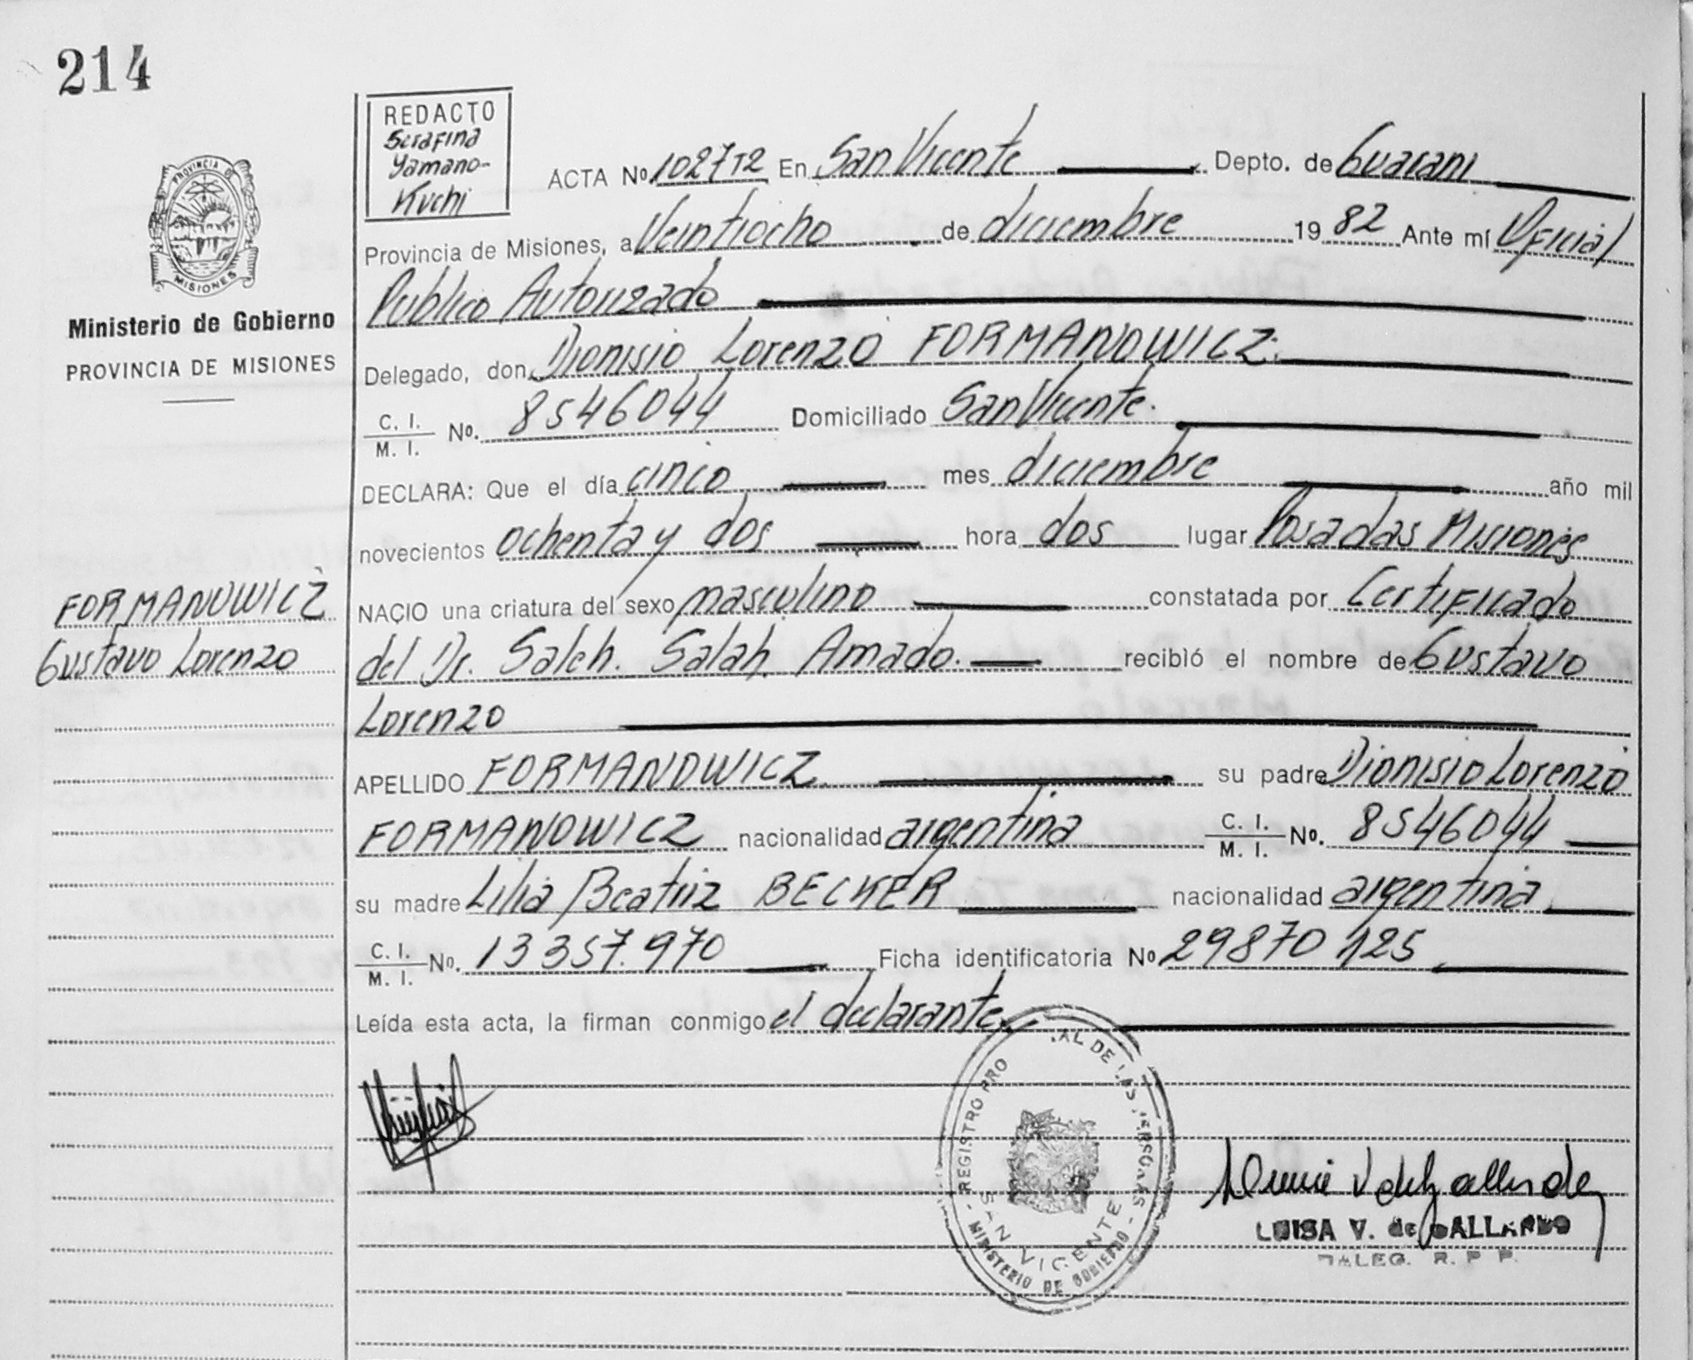 214
REDACTO
Serafina
Yamano-
Kuchi
ACTA Nº 1027T2 En San Vicente Depto. de Guarani
Provincia de Misiones, a Veintiocho de diciembre 19 82 Ante mí Oficial
Publico Autorizado
Delegado, don Dionisio Lorenzo FORMANOWICZ.
C. I.
M. I. Nº. 8546044 Domiciliado San Vicente.
DECLARA: Que el día cinco mes diciembre año mil
novecientos ochenta y dos hora dos lugar Posadas Misiones
NACIO una criatura del sexo masculino constatada por Certificado
del Dr. Saleh. Salah Amado. recibió el nombre de Gustavo
Lorenzo
APELLIDO FORMANOWICZ su padre Dionisio Lorenzo
FORMANOWICZ nacionalidad argentina C. I.
M. I. Nº. 8546044
su madre Lilia Beatriz BECKER nacionalidad argentina
C. I.
M. I. Nº. 13357.970 Ficha identificatoria Nº 29870125
Leída esta acta, la firman conmigo el declarante
PROVINCIA DE
MISIONES
Ministerio de Gobierno
PROVINCIA DE MISIONES
FORMANOWICZ
Gustavo Lorenzo
REGISTRO PRO AL DE LAS PERSONAS
SAN VICENTE
MINISTERIO DE GOBIERNO
LUISA V. de GALLARDO
DALEG. R. P. P.